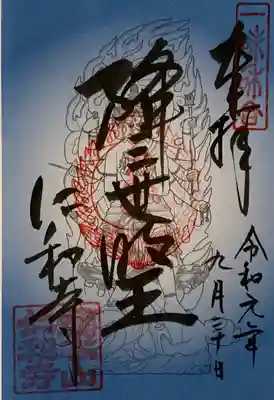 奉拝
降三世明王
仁和寺
令和元年
九月三十日